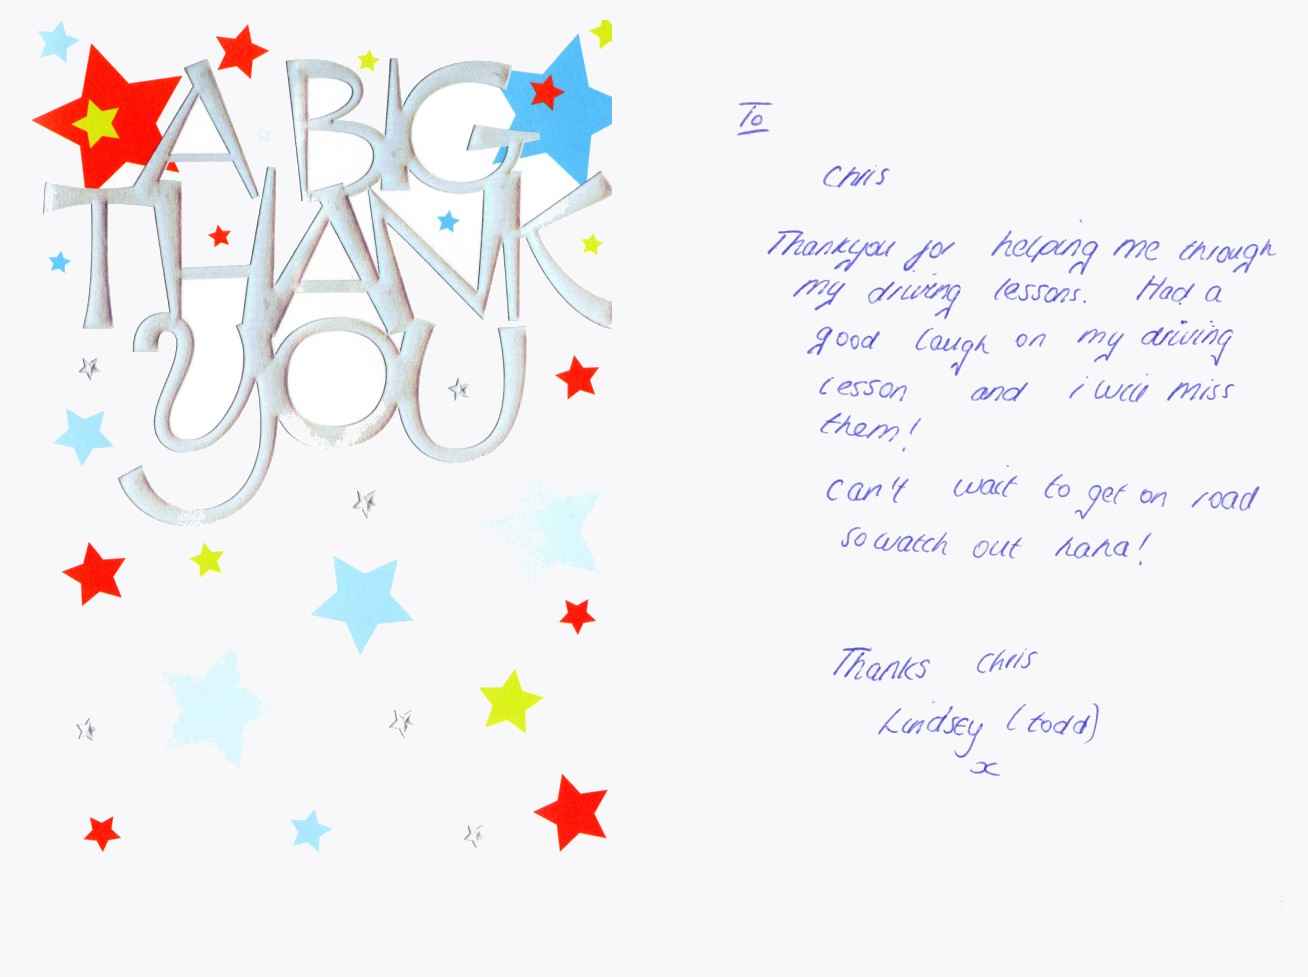 A BIG
THANK
YOU
To
Chris
Thankyou for helping me through
my driving lessons. Had a
good laugh on my driving
lesson and i will miss
them!
can't wait to get on road
so watch out haha!
Thanks Chris
Lindsey (todd)
x